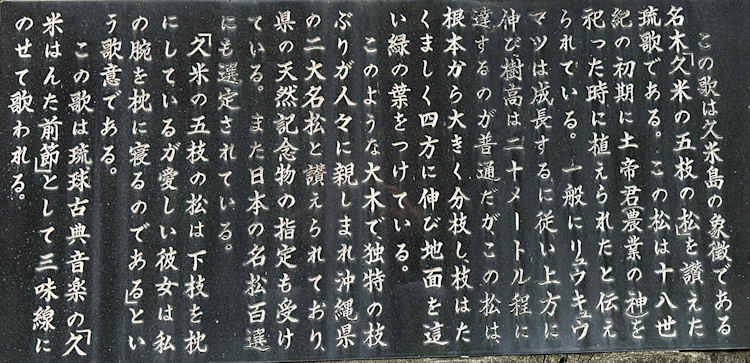 この歌は久米島の象徴である
名木「久米の五枝の松」を讃えた
琉歌である。この松は十八世
紀の初期に土帝君(農業の神)を
祀った時に植えられたと伝え
られている。一般にリュウキュウ
マツは成長するに従い上方に
伸び樹高は二十メートル程に
達するのが普通だがこの松は
根本から大きく分枝し、枝はた
くましく四方に伸び地面を這
い緑の葉をつけている。
このような大木で独特の枝
ぶりが人々に親しまれ沖縄県
の二大名松と讃えられており、
県の天然記念物の指定も受け
ている。また日本の名松百選
にも選定されている。
「久米の五枝の松は下枝を枕
にしているが愛しい彼女は私
の腕を枕に寝るのである」とい
う歌意である。
この歌は琉球古典音楽の「久
米はんた前節」として三味線に
のせて歌われる。